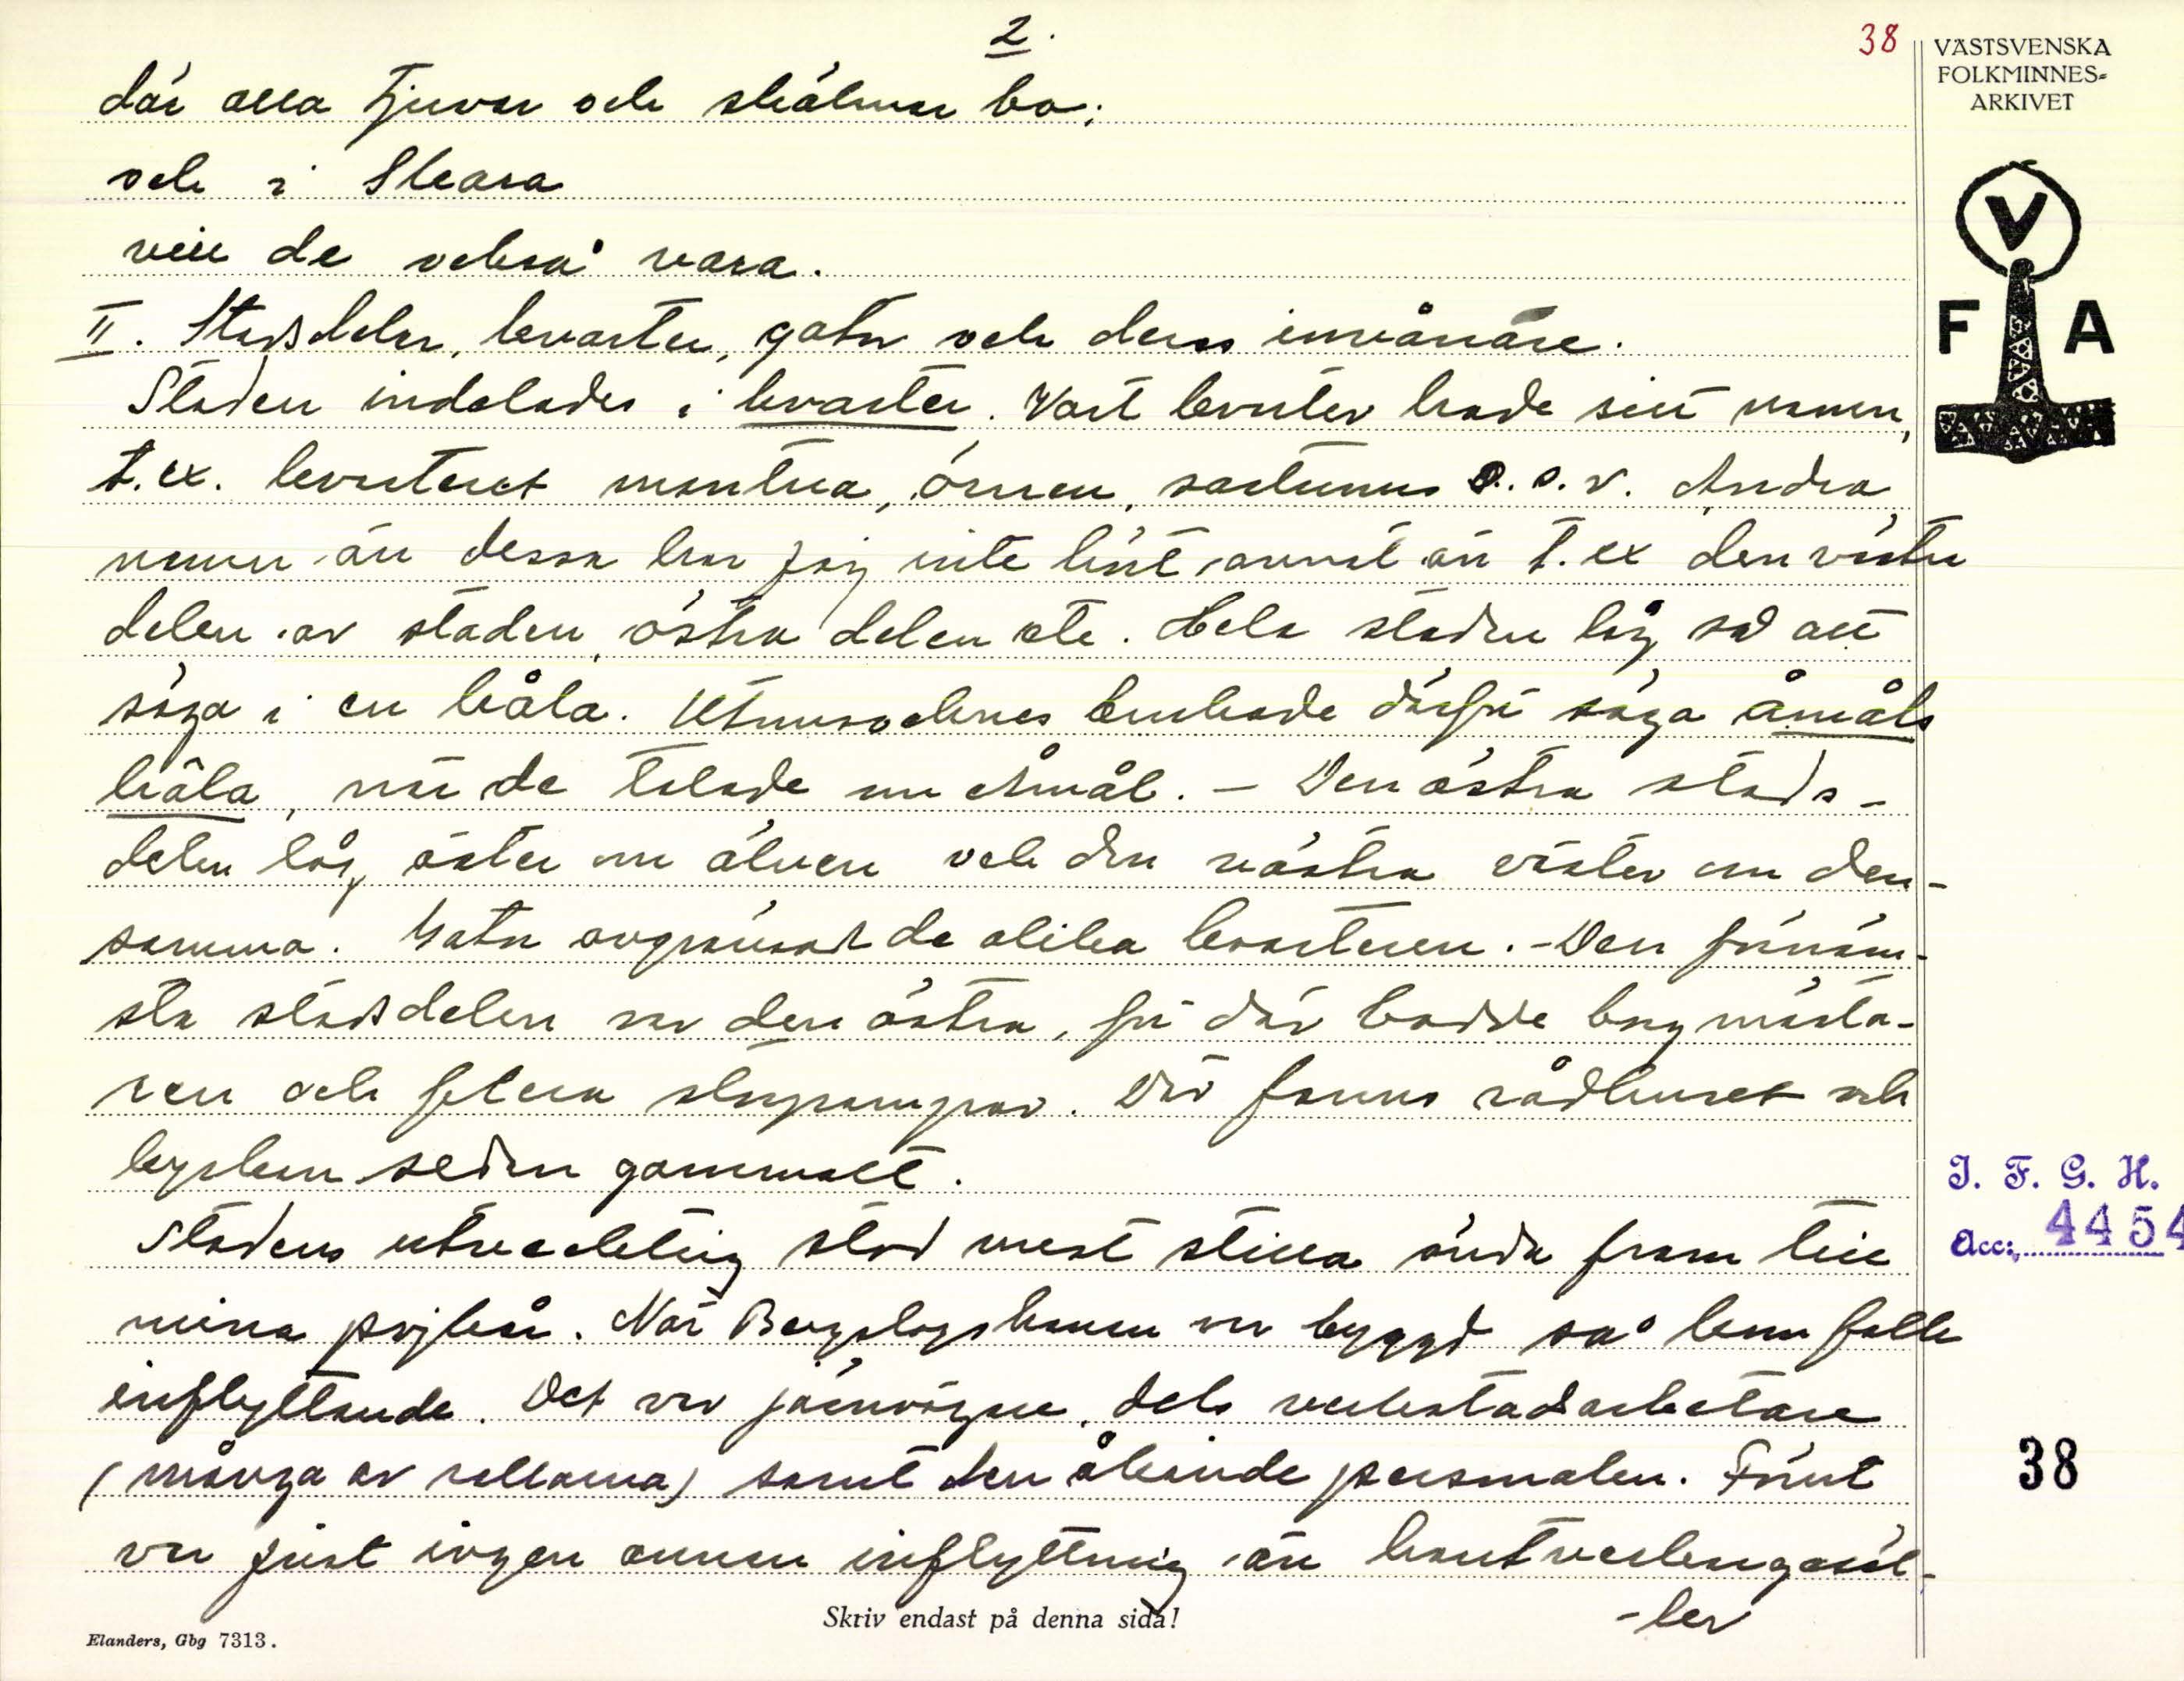 2.
38
VÄSTSVENSKA
FOLKMINNES-
ARKIVET
där alla tjuvar och skälmar bo;
och i Skara
vill de också vara.
II. Stadsdelar, kvarter, gator och deras invånare.
Staden indelades i kvarter. Vart kvarter hade sitt namn,
t.ex. kvarteret mantua, örnen, saturnus o.s.v. Andra
namn än dessa har jag inte hört annat än t.ex den västra
delen av staden, östra delen etc. Hela staden låg så att
säga i en håla. Utsocknes brukade därför säga åmåls
håla, när de talade om Åmål. – Den östra stads-
delen låg öster om älven och den västra väster om den-
samma. Gator avgränsad de olika kvarteren. – Den förnäm-
sta stadsdelen var den östra, för där bodde borgmästa-
ren och flera storgubbar. Där fanns rådhuset och
kyrkan sedan gammalt.
Stadens utveckling stod mest stilla ända fram till
mina pojkår. När Bergslagsbanan var byggd så kom folk
inflyttande. Det var järnvägare, dels verkstadsarbetare
(många av rallarna) samt den åkande personalen. Förut
var just ingen annan inflyttning än hantverksgesäl-
-ler
V
F A
I. F. G. H.
Acc: 4454
38
Skriv endast på denna sida!
Elanders, Gbg 7313.